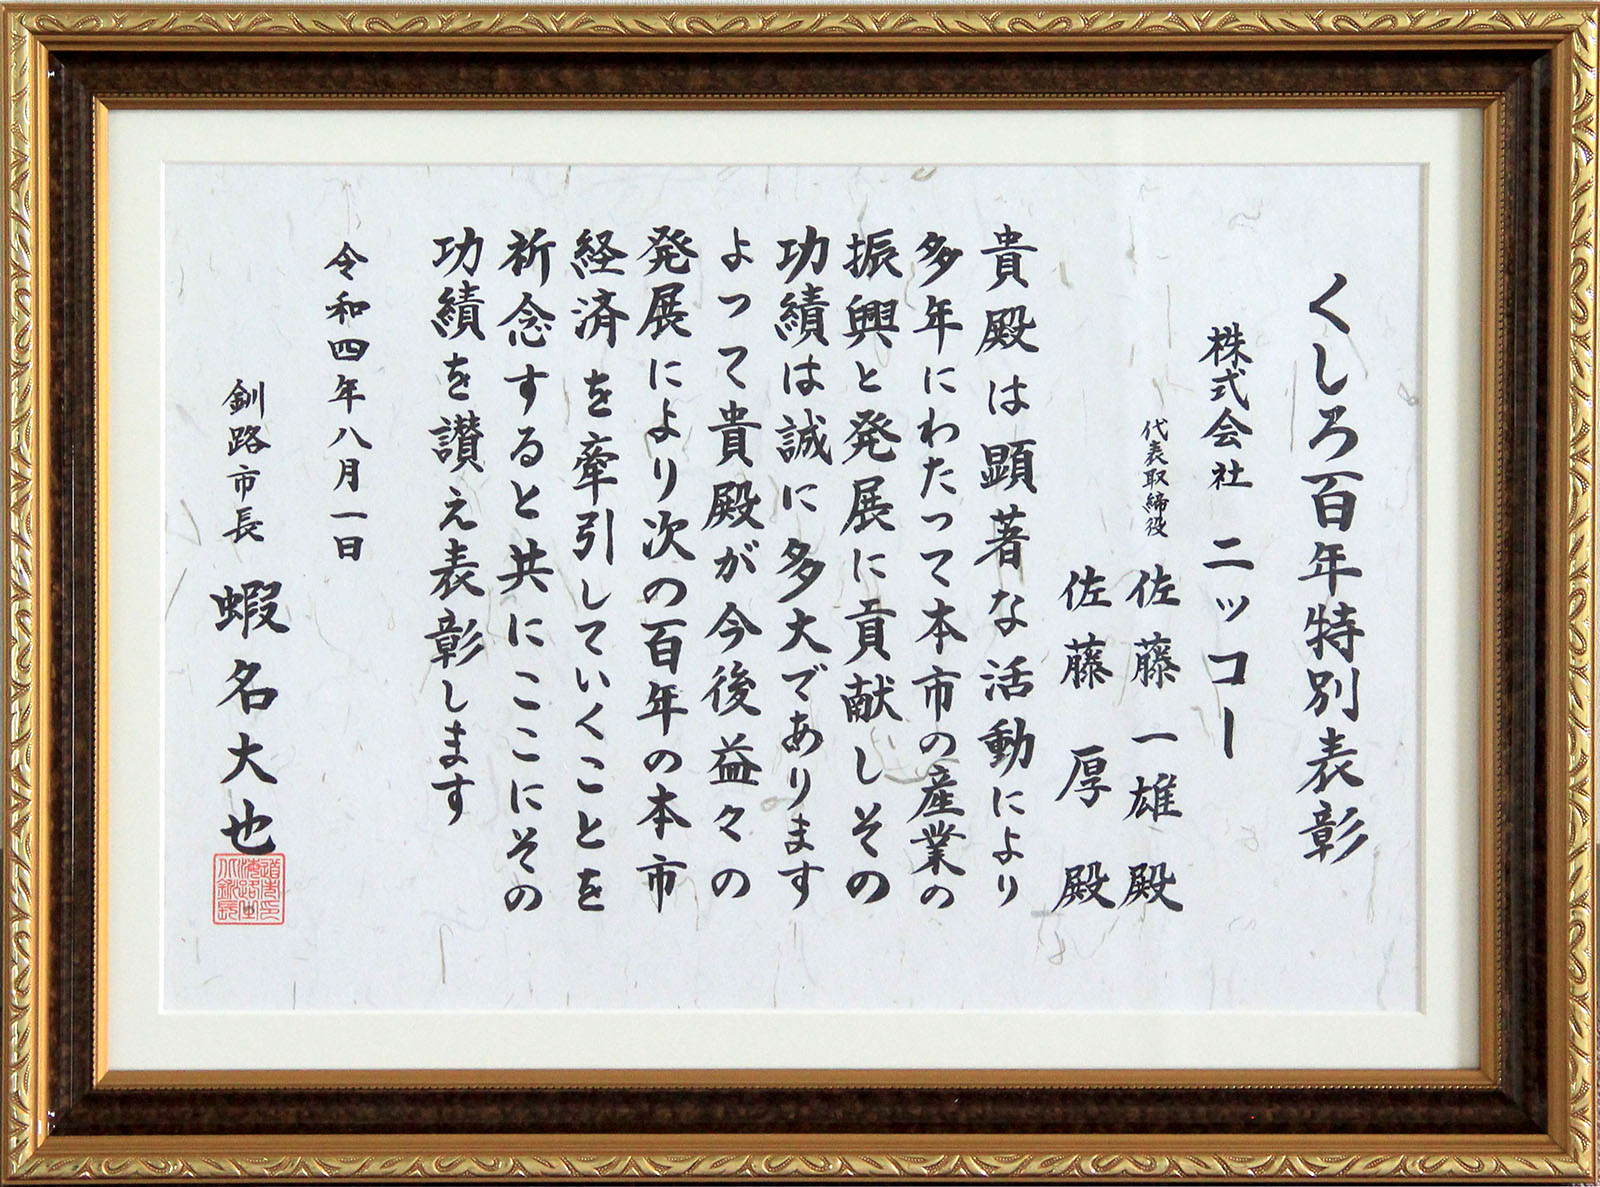 くしろ百年特別表彰
株式会社 ニッコー
代表取締役 佐藤一雄殿
佐藤厚殿
貴殿は顕著な活動により
多年にわたって本市の産業の
振興と発展に貢献しその
功績は誠に多大であります
よって貴殿が今後益々の
発展により次の百年の本市
経済を牽引していくことを
祈念すると共にここにその
功績を讃え表彰します
令和四年八月一日
釧路市長 蝦名大也